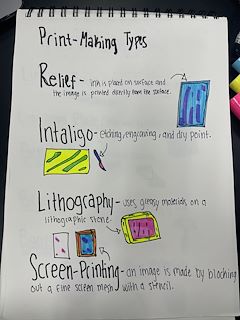 Print-Making Types
Relief- Ink is placed on surface and
the image is printed directly from the surface.
Intaligo- Etching, engraving, and dry point.
Lithography- uses greasy materials on a
lithographic stone.
Screen-Printing- an image is made by blocking
out a fine screen mesh with a stencil.